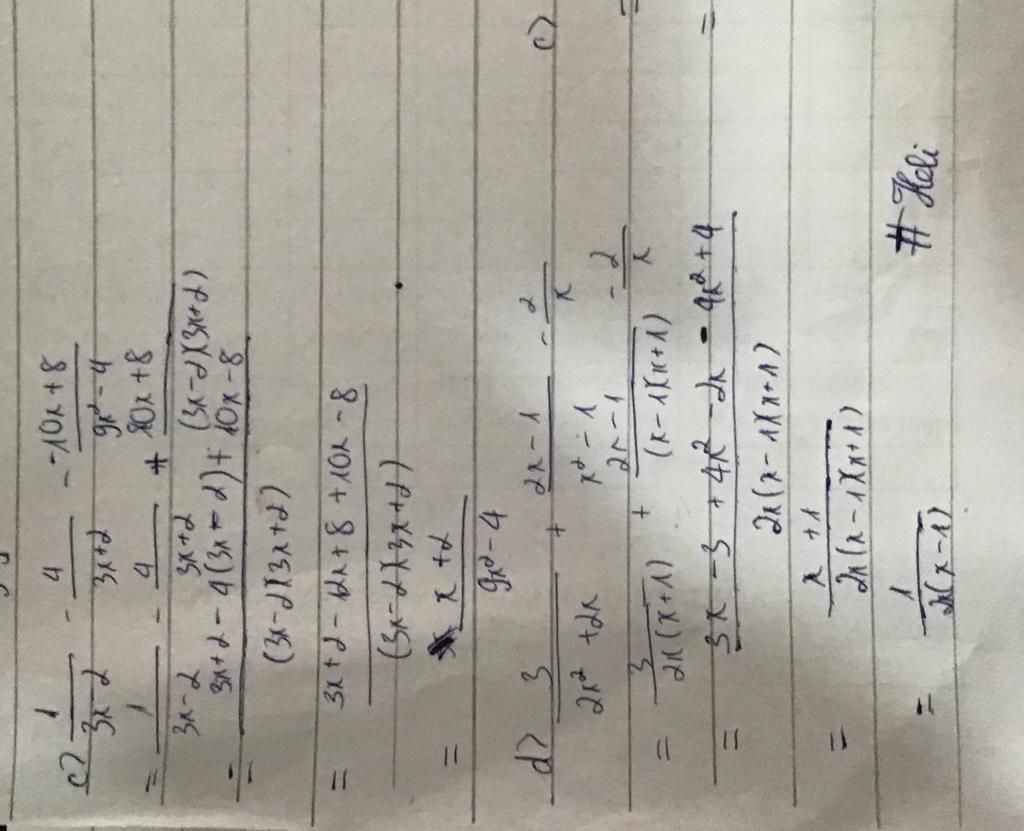 c) 1/(3x-2) - 4/(3x+2) - (-10x+8)/(9x²-4)
= 1/(3x-2) - 4/(3x+2) + (10x+8)/((3x-2)(3x+2))
= (3x+2-4(3x-2)+10x-8)/((3x-2)(3x+2))
= (3x+2-12x+8+10x-8)/((3x-2)(3x+2))
= (x+2)/(9x²-4)
d) 3/(2x²+2x) + (2x-1)/(x²-1) - 2/x
= 3/(2x(x+1)) + (2x-1)/((x-1)(x+1)) - 2/x
= (3x-3+4x²-2x-4x²+4)/(2x(x-1)(x+1))
= (x+1)/(2x(x-1)(x+1))
= 1/(2x(x-1))
# Heli
e)
=
=